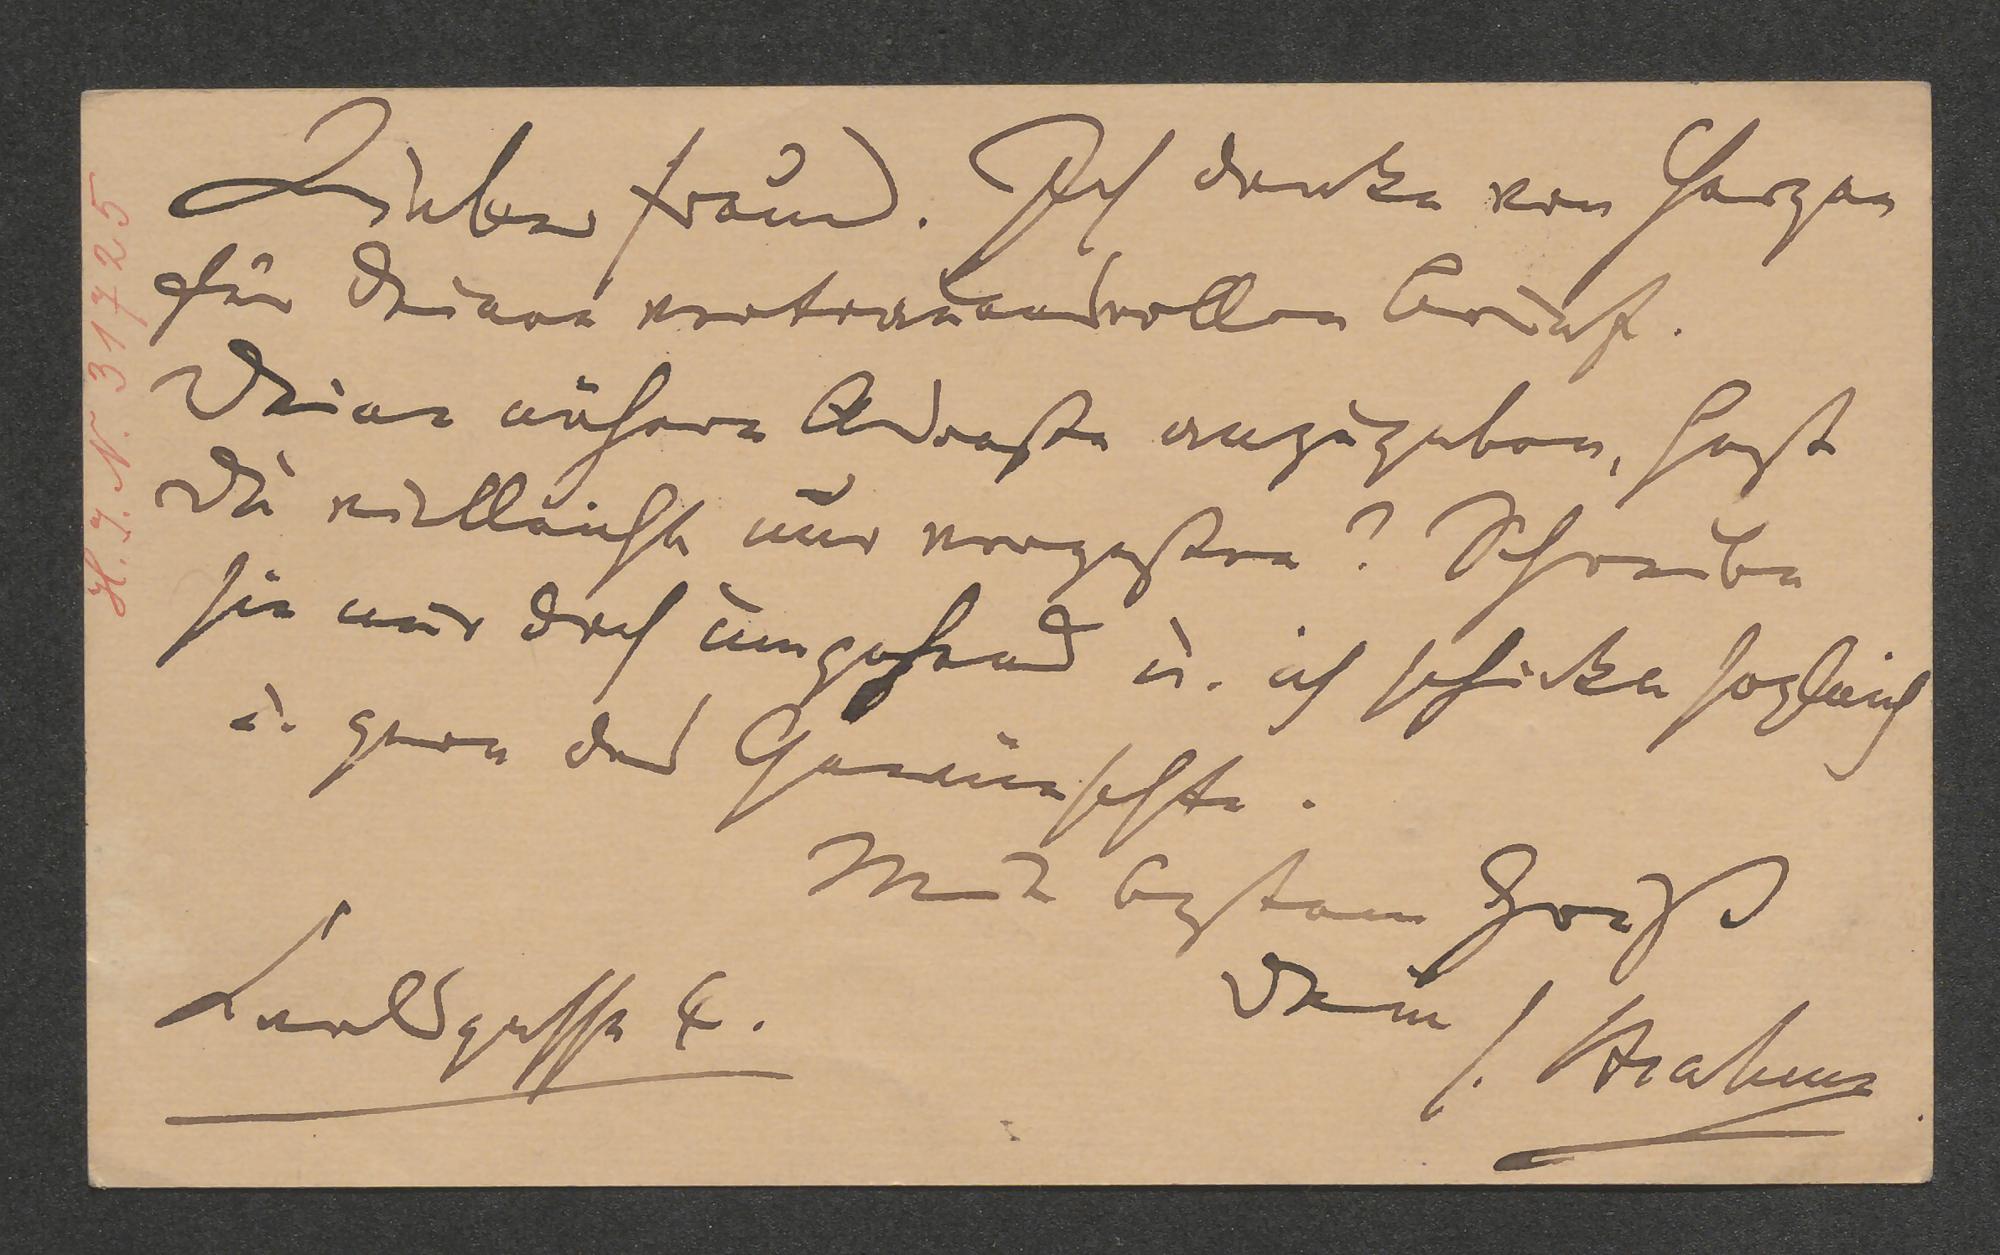 Lieber Freund. Ich danke von Herzen
für Deinen vertrauensvollen Brief.
Deine nähere Adresse anzugeben, hast
Du vielleicht nur vergessen? Schreibe
sie mir doch umgehend u. ich schicke sogleich
u. gern das Gewünschte.
Mit bestem Gruß
Dein
J. Brahms
Karlsgasse 4.
H. I. N. 31725